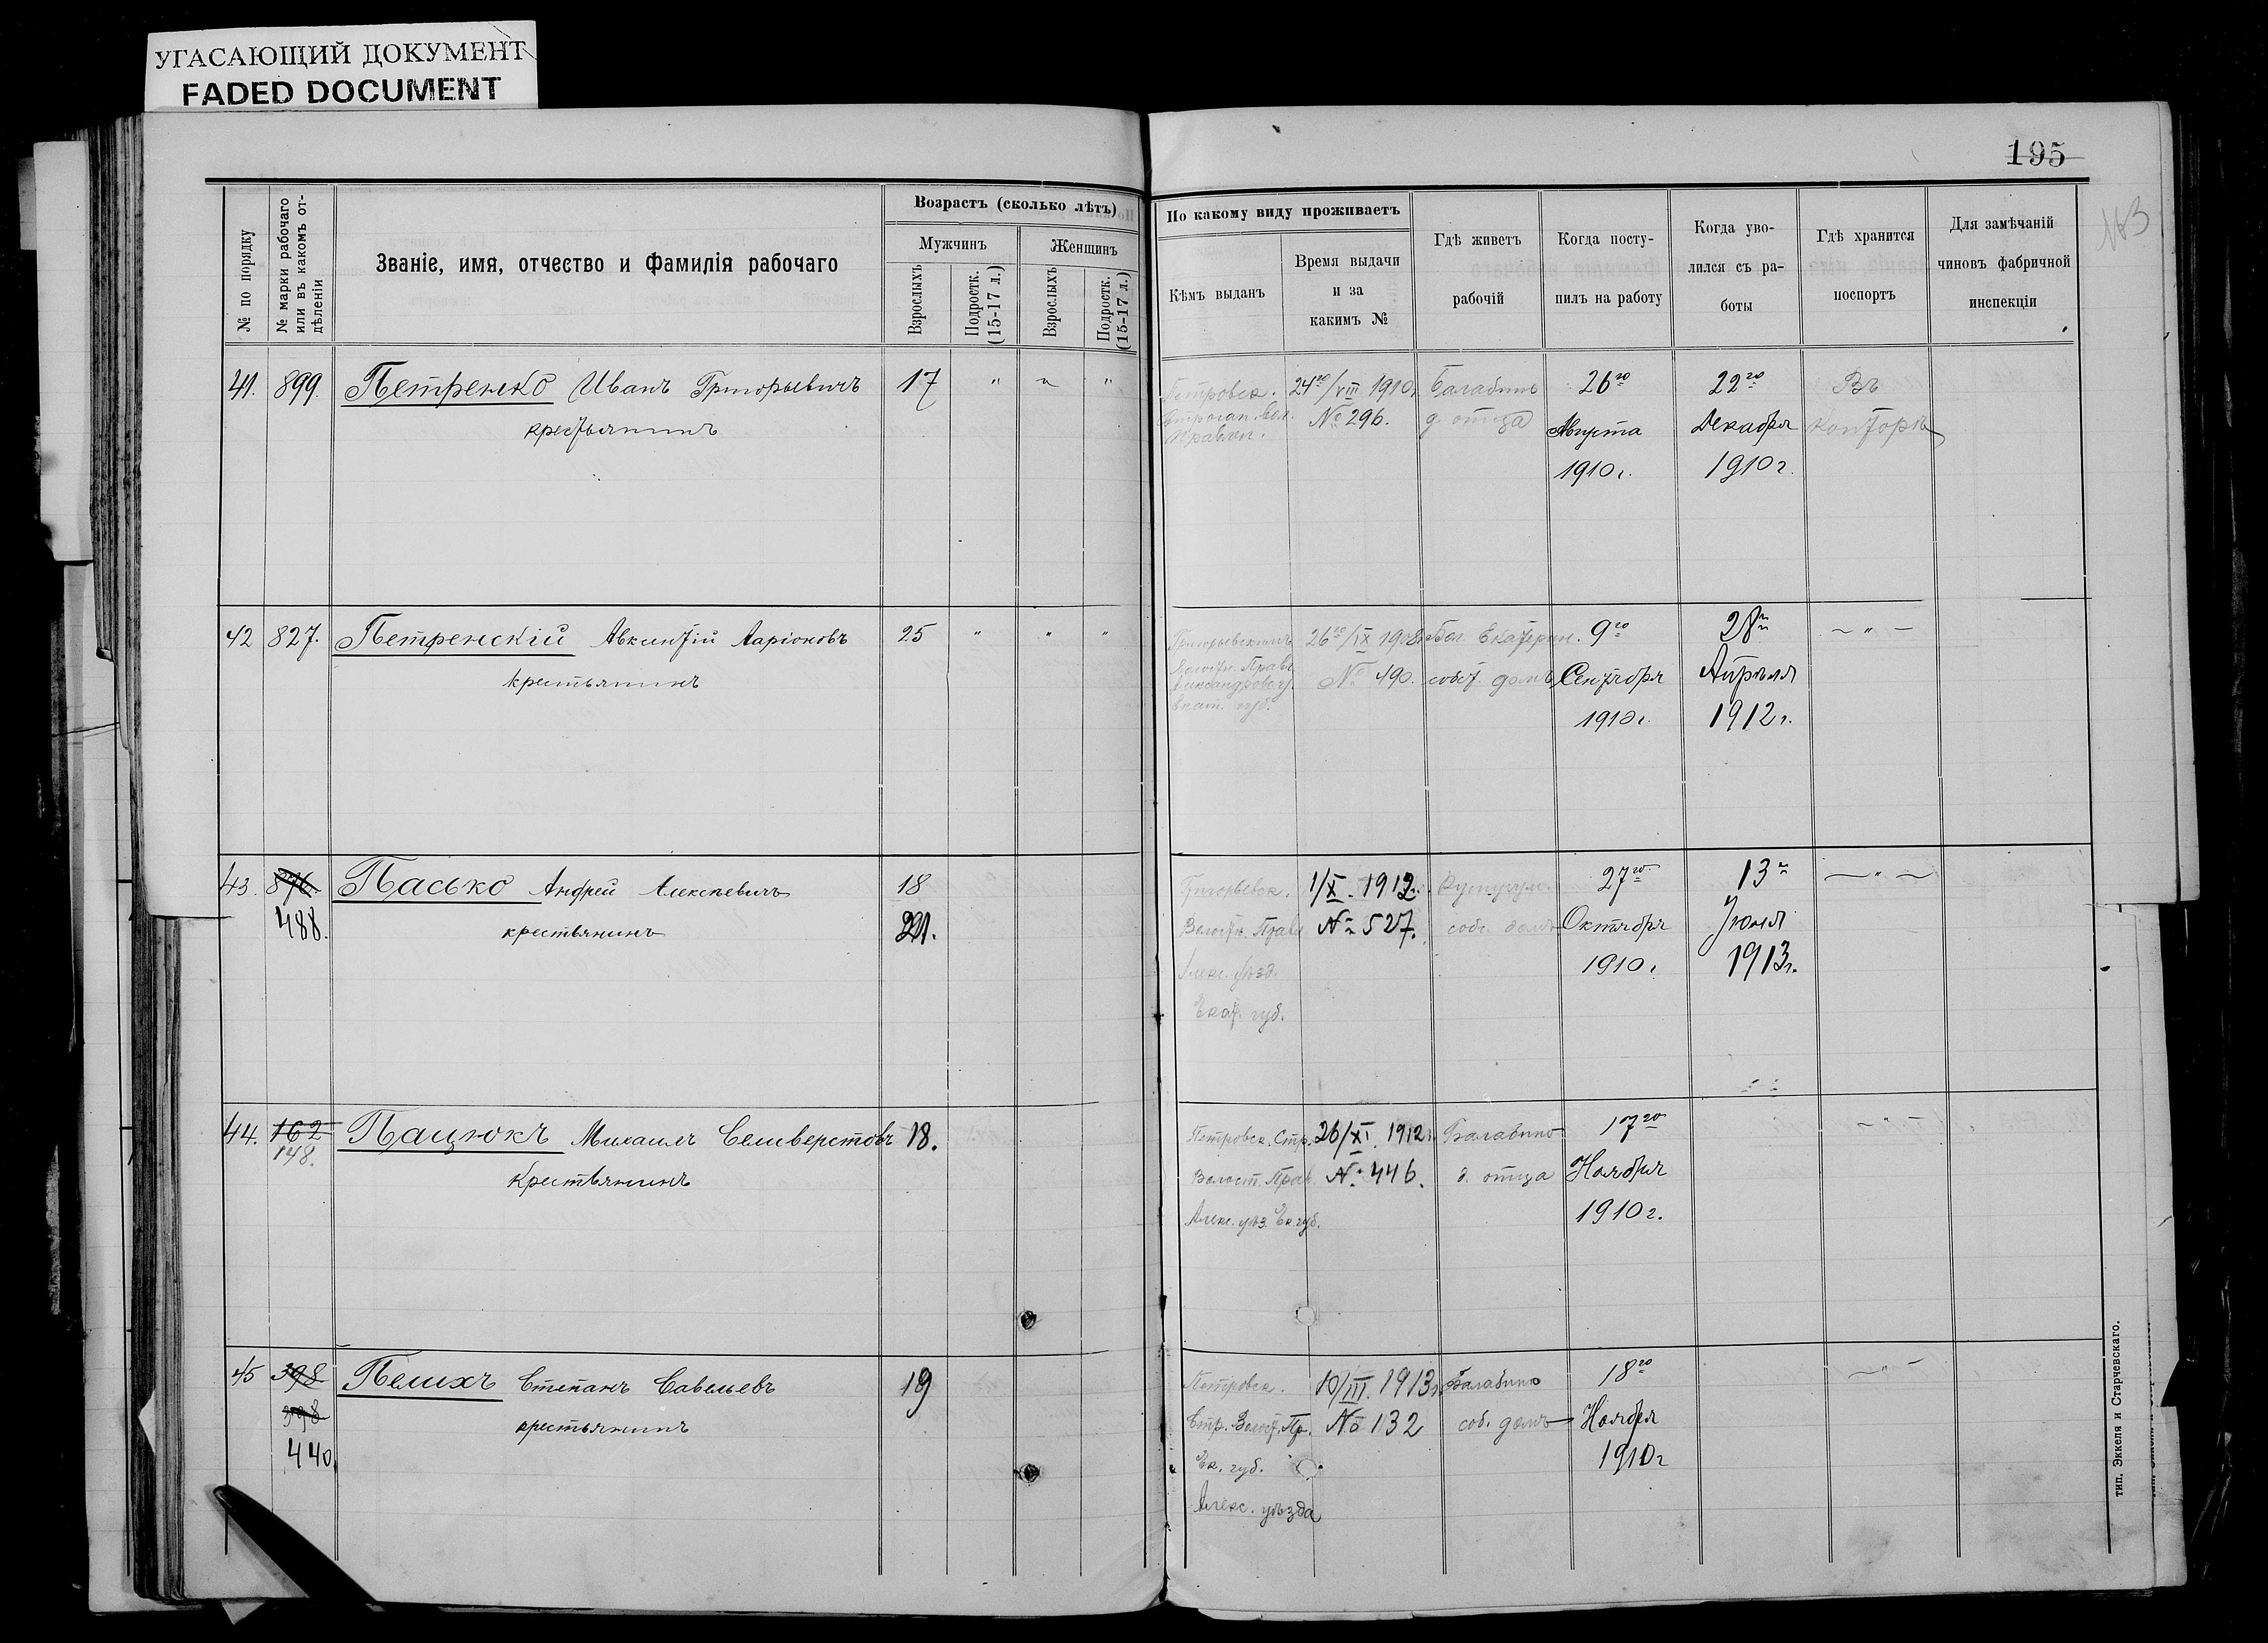 УГАСАЮЩИЙ ДОКУМЕНТ
FADED DOCUMENT
195
183
№ по порядку
№ марки рабочаго или въ какомъ отдѣленіи
Званіе, имя, отчество и фамилія рабочаго
Возрастъ (сколько лѣтъ)
Мужчинъ
Женщинъ
Взрослыхъ
Подростк. (15-17 л.)
Взрослыхъ
Подростк. (15-17 л.)
По какому виду проживаетъ
Кѣмъ выданъ
Время выдачи
и за
какимъ №
Гдѣ живетъ
рабочій
Когда посту-
пилъ на работу
Когда уво-
лился съ ра-
боты
Гдѣ хранится
поспортъ
Для замѣчаній
чиновъ фабричной
инспекціи
41. 899. Петренско Иванъ Григорьевичъ 17 " " "
крестьянинъ
Петровск. 24го/VIII 1910г. Балабино 26го 22го Въ
Строган. Вол. № 296. д. отца Августа Декабря Конторѣ
Правлен. 1910г. 1910г.
42 827. Петренскій Авксентій Ларіоновъ 25 " " "
крестьянинъ
Григорьевскимъ 26го/IX 1908г. Екатерин. 9го 28го — " —
Волостн. Правл. № 490. собст. домъ Сентября Апрѣля
Александровск. 1910г. 1912г.
Екат. губ.
43. 876 Пасько Андрей Алексѣевичъ 18
488. крестьянинъ 21.
Григорьевск. 1/X. 1912г. 27го 13го — " —
Волостн. Правл. № 527. собс. домъ Октября Іюня
Алекс. уѣзд. 1910г. 1913г.
Екат. губ.
44. 162 Пацюкъ Михаилъ Селиверстовъ 18.
148. Крестьянинъ
Петровск. Стр. 26/XI. 1912г. Балабино 17го — " —
Волост. Прав. № 446. д. отца Ноября
Алекс. уѣз. Ек. губ. 1910г.
45 398 Пелихъ Степанъ Савельевъ 19
398 крестьянинъ
440.
Петровск. 10/III. 1913г. Балабино 18го — " —
Стр. Волост. Пр. № 132 соб. домъ Ноября
Ек. губ. 1910г
Алекс. уѣзда
тип. Эккеля и Старчевскаго.